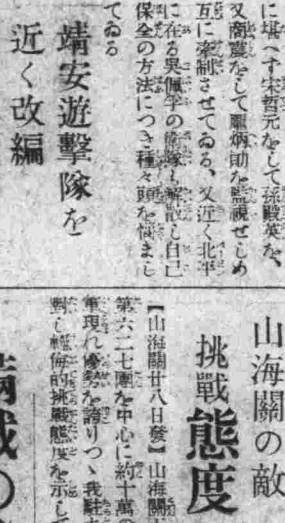 に堪へず宋哲元をして孫殿英を、
又商震をして龐炳勛を監視せしめ
互に牽制させてゐる、又近く北平
に在る吳佩孚の衛隊も解散し自己
保全の方法につき種々頭を悩まし
てゐる
靖安遊擊隊を
近く改編
山海關の敵
挑戰態度
【山海關廿八日發】山海關
第六二七團を中心に約十萬の
軍現れ優勢を誇りつゝ我駐
對し輕侮的挑戰態度を示して